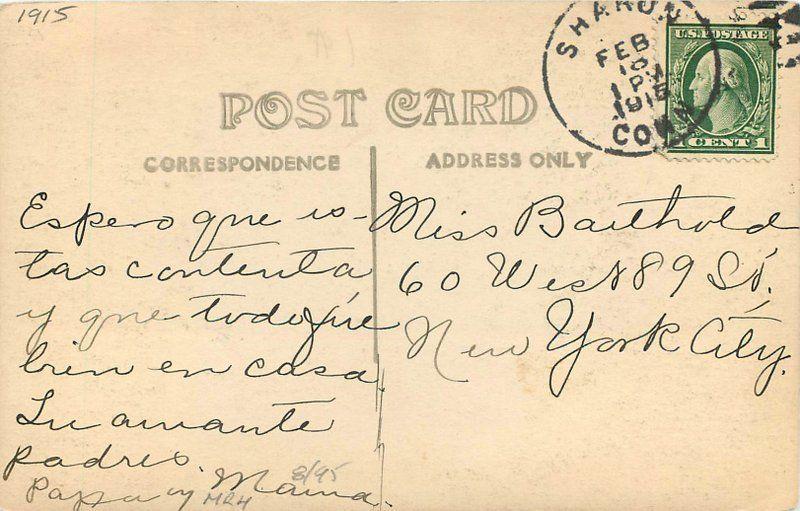 1915
SHARON
FEB
10
1 P
1915
CONN
U.S. POSTAGE
CENT 1
POST CARD
CORRESPONDENCE
ADDRESS ONLY
Espero que es-
tas contenta
y que todo fue
bien en casa.
Tu amante
padres.
Papa y Mama.
8/95
MRH
Miss Barthold
60 West 89 St.
New York City.